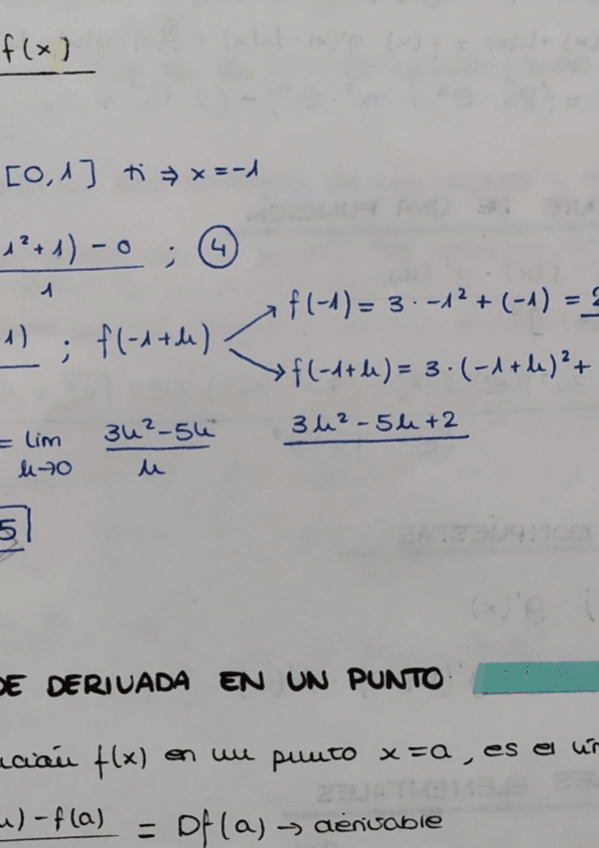 f(x)
[0,1] ti ⇒ x = -1
1² + 1) - 0 ; 4
1
f(-1) = 3 · -1² + (-1) = 2
-1) ; f(-1+h)
f(-1+h) = 3 · (-1+h)² +
= lim 3h² - 5h 3h² - 5h + 2
h→0 h
5
DE DERIVADA EN UN PUNTO
f(x) en un punto x = a, es el
) - f(a) = Df(a) → derivable